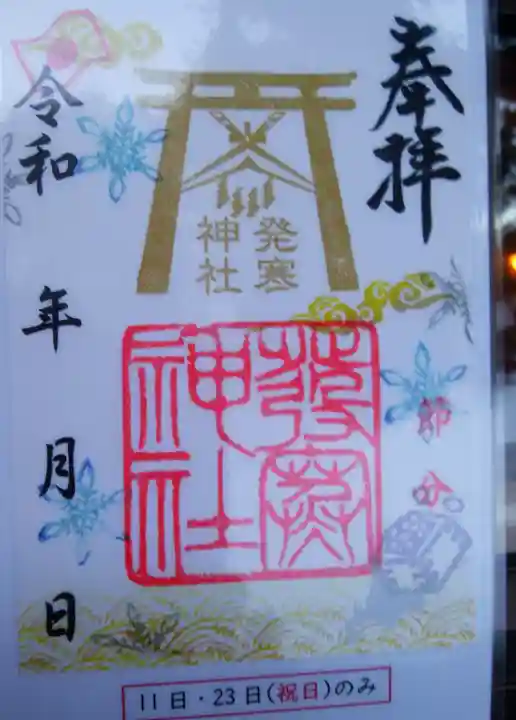 奉拝
発寒
神社
發寒
神社
節分
令和 年 月 日
11日・23日(祝日)のみ